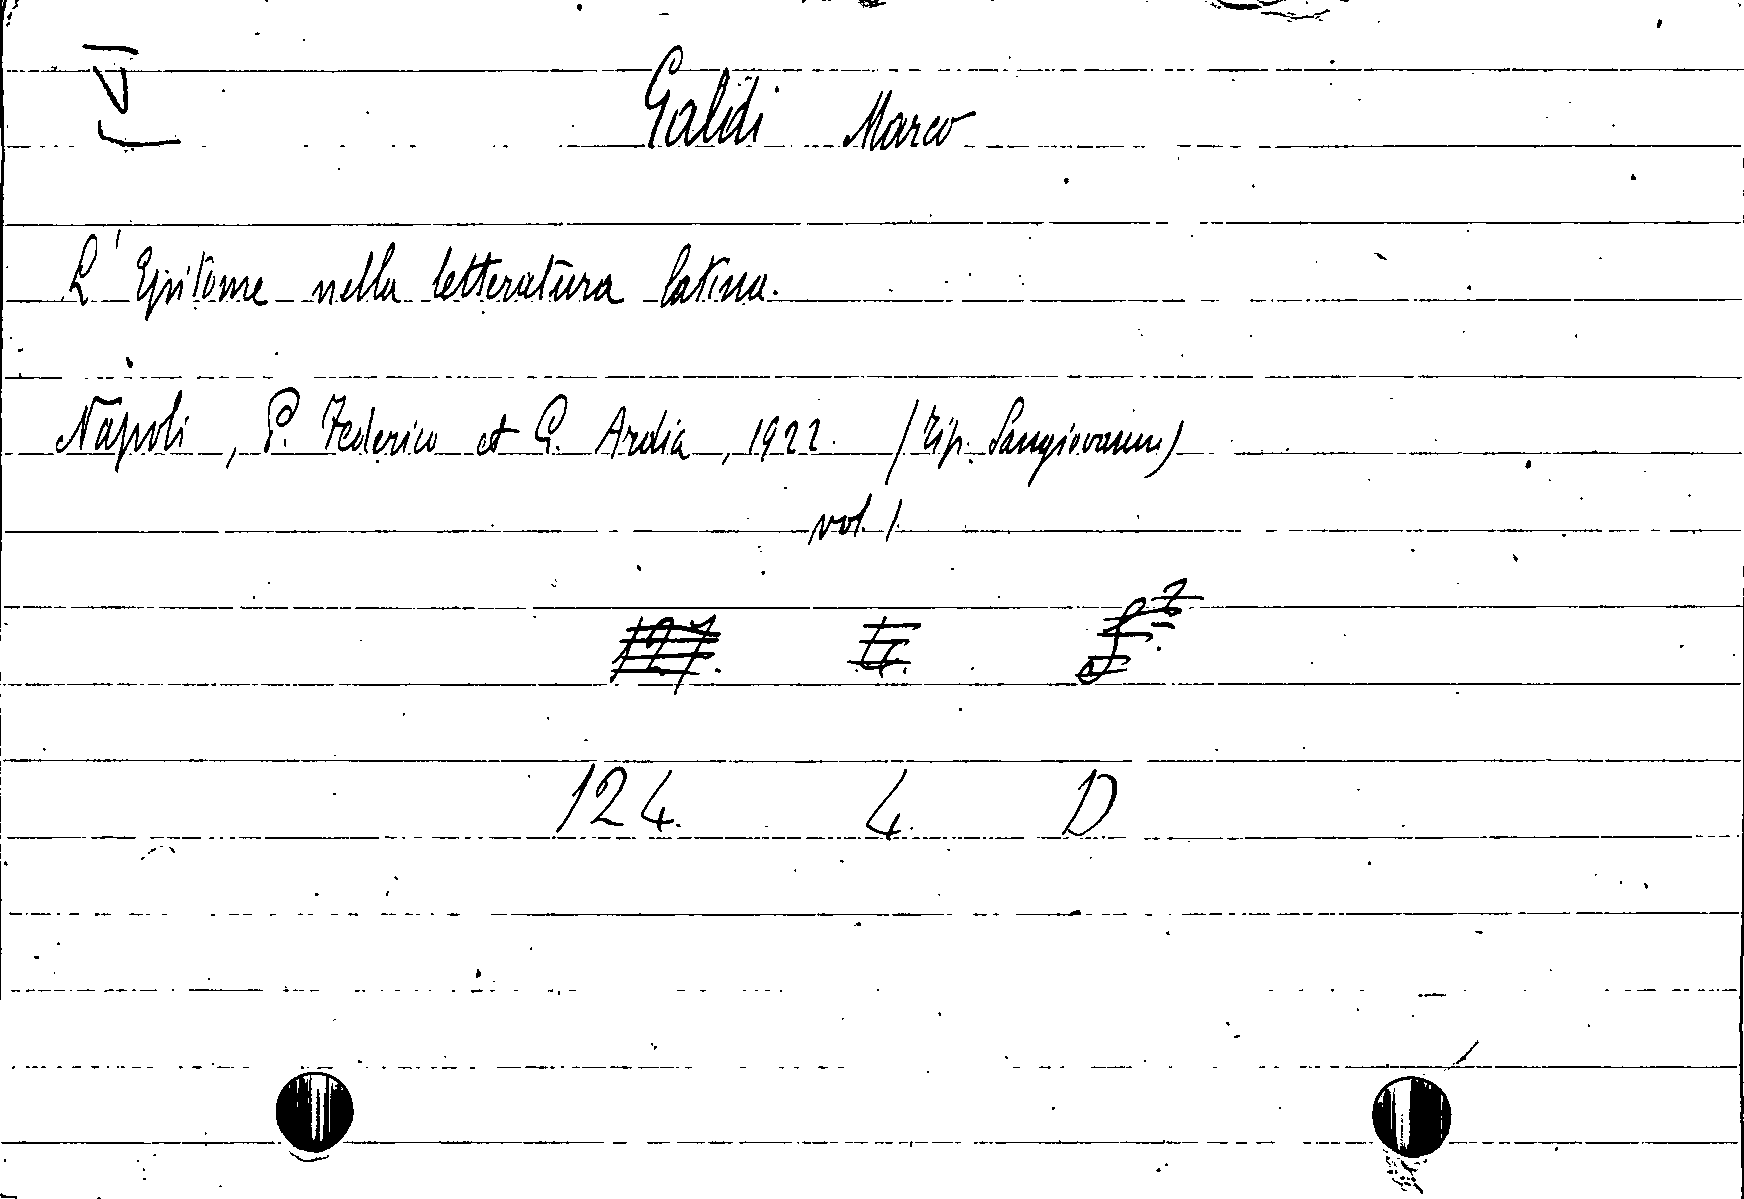 Galdi Marco
L'Epitome nella letteratura latina.
Napoli, P. Federico et G. Ardia, 1922. (Tip. Sangiovanni)
vol. 1.
124. 4. D